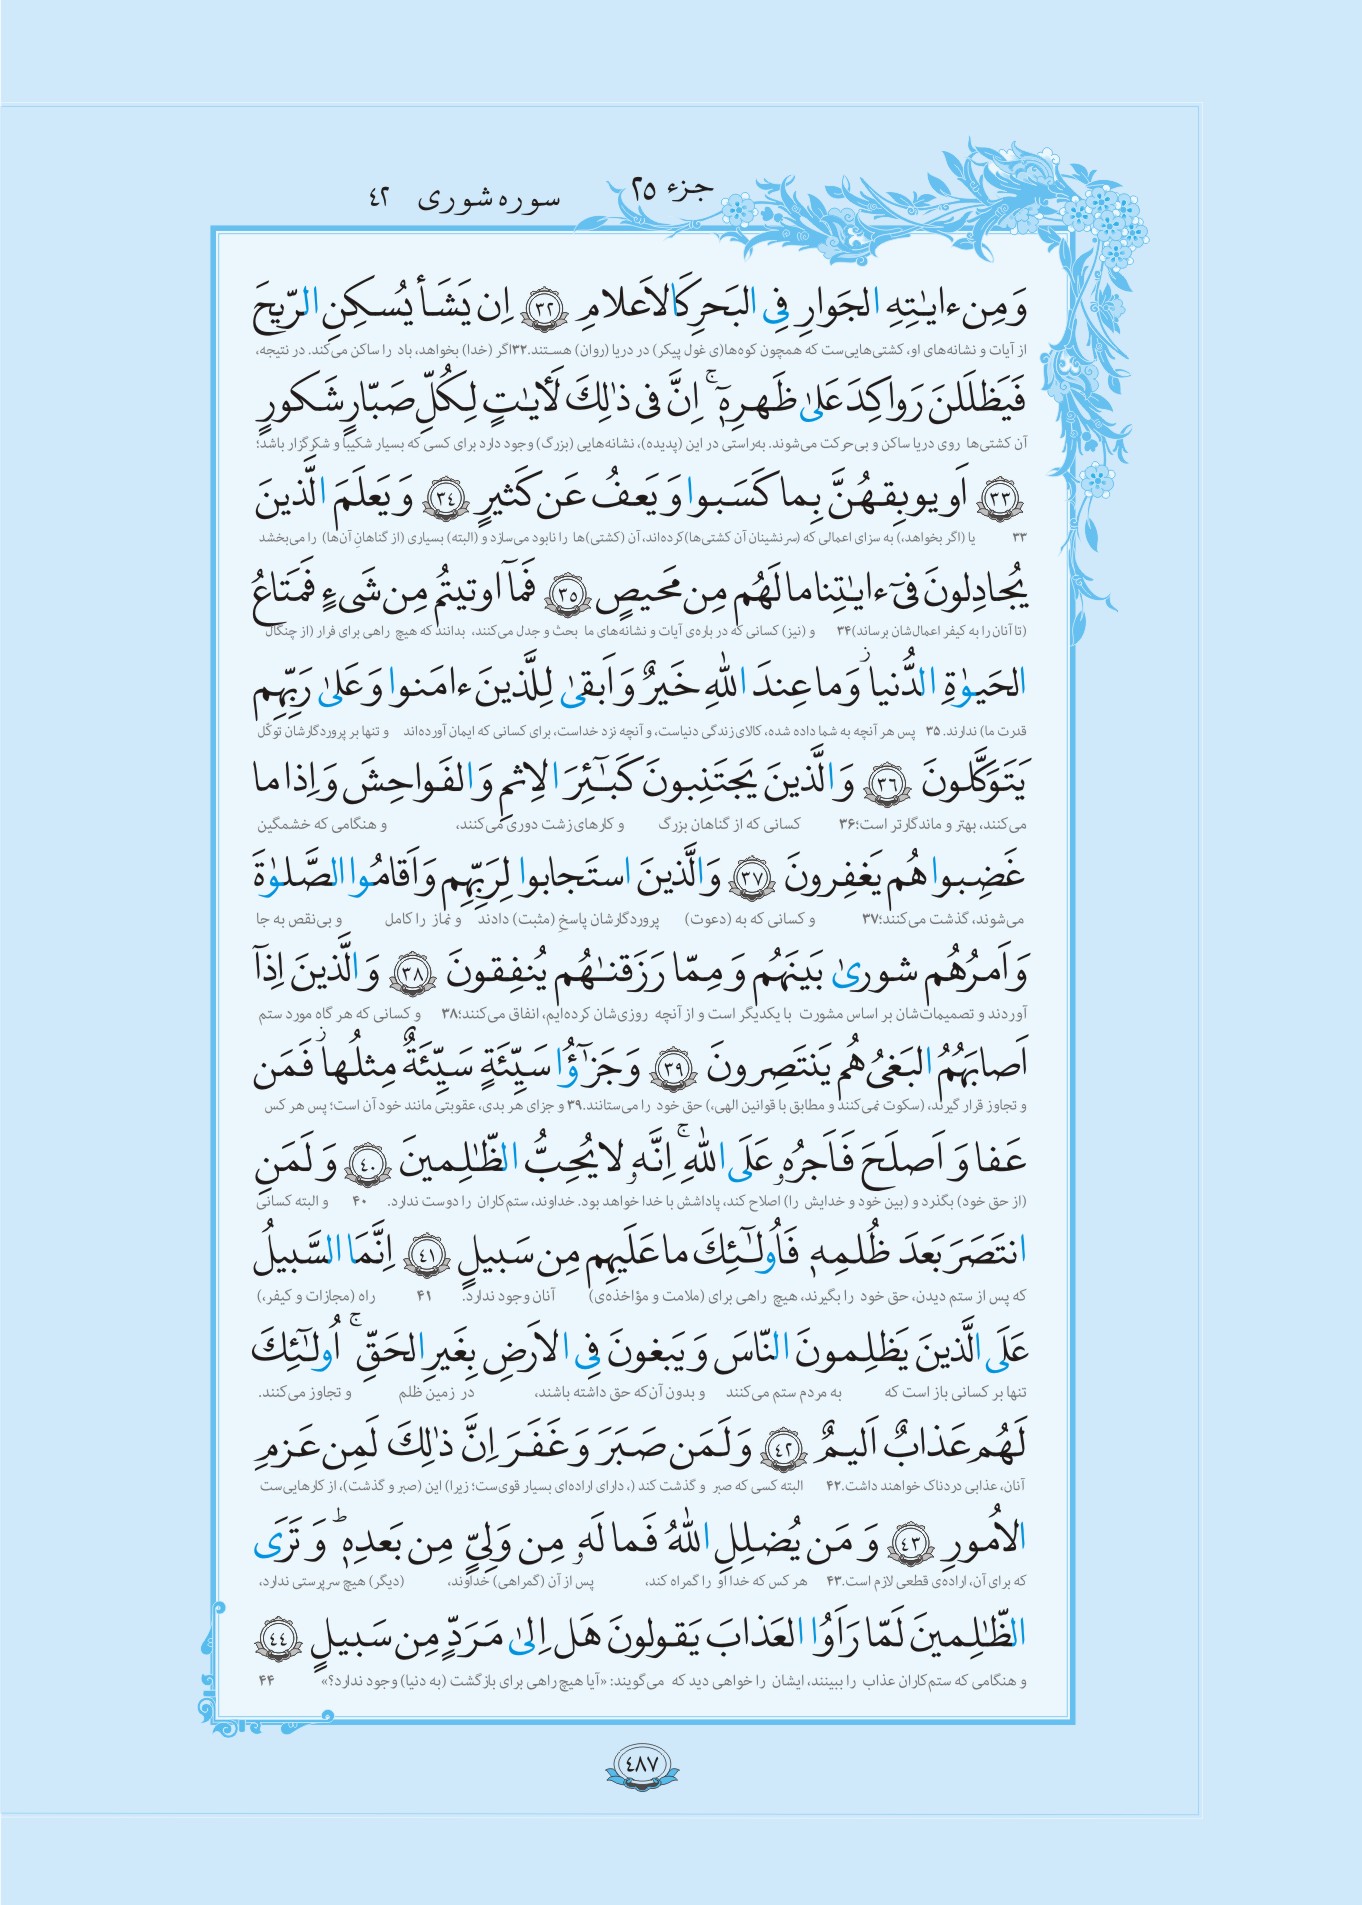 جزء ۲۵
سوره شوری ٤٢
وَ مِن ءايٰتِهِ الجَوارِ فِى البَحرِ كَالاَعلامِ ٣٢ اِن يَشَأ يُسكِنِ الرّيحَ
از آیات و نشانه‌های او، کشتی‌هایی‌ست که همچون کوه‌ها(ی غول پیکر) در دریا (روان) هستند.۳۲اگر (خدا) بخواهد، باد را ساکن می‌کند. در نتیجه،
فَيَظلَلنَ رَواكِدَ عَلىٰ ظَهرِهٖٓ ۚ اِنَّ فى ذٰلِكَ لَأَيٰتٍ لِكُلِّ صَبّارٍ شَكورٍ
آن کشتی‌ها روی دریا ساکن و بی‌حرکت می‌شوند. به‌راستی در این (پدیده)، نشانه‌هایی (بزرگ) وجود دارد برای کسی که بسیار شکیبا و شکرگزار باشد؛
٣٣ اَو يوبِقهُنَّ بِما كَسَبوا وَ يَعفُ عَن كَثيرٍ ٣٤ وَ يَعلَمَ الَّذينَ
۳۳ یا (اگر بخواهد،) به سزای اعمالی که (سرنشینان آن کشتی‌ها)کرده‌اند، آن (کشتی)ها را نابود می‌سازد و (البته) بسیاری (از گناهانِ آن‌ها) را می‌بخشد
يُجادِلونَ فىٓ ءايٰتِنا ما لَهُم مِن مَحيصٍ ٣٥ فَمآ اوتيتُم مِن شَىءٍ فَمَتاعُ
(تا آنان را به کیفر اعمال‌شان برساند)۳۴ و (نیز) کسانی که در باره‌ی آیات و نشانه‌های ما بحث و جدل می‌کنند، بدانند که هیچ راهی برای فرار (از چنگال
الحَيوٰةِ الدُّنيا ۖ وَ ما عِندَ اللهِ خَيرٌ وَ اَبقىٰ لِلَّذينَ ءامَنوا وَ عَلىٰ رَبِّهِم
قدرت ما) ندارند. ۳۵ پس هر آنچه به شما داده شده، کالای زندگی دنیاست، و آنچه نزد خداست، برای کسانی که ایمان آورده‌اند و تنها بر پروردگارشان توکّل
يَتَوَكَّلونَ ٣٦ وَ الَّذينَ يَجتَنِبونَ كَبٰٓئِرَ الاِثمِ وَ الفَواحِشَ وَ اِذا ما
می‌کنند، بهتر و ماندگارتر است؛۳۶ کسانی که از گناهان بزرگ و کارهای زشت دوری می‌کنند، و هنگامی که خشمگین
غَضِبوا هُم يَغفِرونَ ٣٧ وَ الَّذينَ استَجابوا لِرَبِّهِم وَ اَقامُوا الصَّلوٰةَ
می‌شوند، گذشت می‌کنند؛۳۷ و کسانی که به (دعوت) پروردگارشان پاسخِ (مثبت) دادند و نماز را کامل و بی‌نقص به جا
وَ اَمرُهُم شورىٰ بَينَهُم وَ مِمّا رَزَقنٰهُم يُنفِقونَ ٣٨ وَ الَّذينَ اِذآ
آوردند و تصمیمات‌شان بر اساس مشورت با یکدیگر است و از آنچه روزی‌شان کرده‌ایم، انفاق می‌کنند؛۳۸ و کسانی که هر گاه مورد ستم
اَصابَهُمُ البَغىُ هُم يَنتَصِرونَ ٣٩ وَ جَزٰٓؤُا سَيِّئَةٍ سَيِّئَةٌ مِثلُها ۖ فَمَن
و تجاوز قرار گیرند، (سکوت نمی‌کنند و مطابق با قوانین الهی،) حق خود را می‌ستانند.۳۹ و جزای هر بدی، عقوبتی مانند خود آن است؛ پس هر کس
عَفا وَ اَصلَحَ فَاَجرُهٗ عَلَى اللهِ ۚ اِنَّهٗ لا يُحِبُّ الظّٰلِمينَ ٤٠ وَ لَمَنِ
(از حق خود) بگذرد و (بین خود و خدایش را) اصلاح کند، پاداشش با خدا خواهد بود. خداوند، ستم‌کاران را دوست ندارد. ۴۰ و البته کسانی
انتَصَرَ بَعدَ ظُلمِهٖ فَاُولٰٓئِكَ ما عَلَيهِم مِن سَبيلٍ ٤١ اِنَّمَا السَّبيلُ
که پس از ستم دیدن، حق خود را بگیرند، هیچ راهی برای (ملامت و مؤاخذه‌ی) آنان وجود ندارد. ۴۱ راه (مجازات و کیفر،)
عَلَى الَّذينَ يَظلِمونَ النّاسَ وَ يَبغونَ فِى الاَرضِ بِغَيرِ الحَقِّ ۚ اُولٰٓئِكَ
تنها بر کسانی باز است که به مردم ستم می‌کنند و بدون آن‌که حق داشته باشند، در زمین ظلم و تجاوز می‌کنند.
لَهُم عَذابٌ اَليمٌ ٤٢ وَ لَمَن صَبَرَ وَ غَفَرَ اِنَّ ذٰلِكَ لَمِن عَزمِ
آنان، عذابی دردناک خواهند داشت.۴۲ البته کسی که صبر و گذشت کند (، دارای اراده‌ای بسیار قوی‌ست؛ زیرا) این (صبر و گذشت)، از کارهایی‌ست
الاُمورِ ٤٣ وَ مَن يُضلِلِ اللهُ فَما لَهٗ مِن وَلِىٍّ مِن بَعدِهٖ ؕ وَ تَرَى
که برای آن، اراده‌ی قطعی لازم است.۴۳ هر کس که خدا او را گمراه کند، پس از آن (گمراهی) خداوند، (دیگر) هیچ سرپرستی ندارد،
الظّٰلِمينَ لَمّا رَاَوُا العَذابَ يَقولونَ هَل اِلىٰ مَرَدٍّ مِن سَبيلٍ ٤٤
و هنگامی که ستم‌کاران عذاب را ببینند، ایشان را خواهی دید که می‌گویند: «آیا هیچ راهی برای بازگشت (به دنیا) وجود ندارد؟» ۴۴
٤٨٧